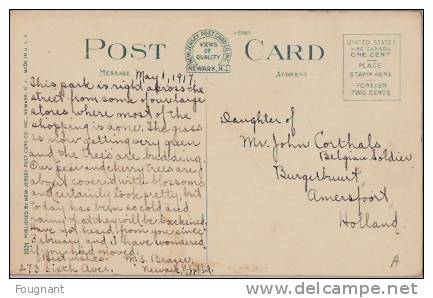 POST CARD
NEW JERSEY POST CARD CO. INC.
VIEWS
OF
QUALITY
NEWARK, N.J.
MESSAGE
ADDRESS
UNITED STATES
AND CANADA
ONE CENT
PLACE
STAMP HERE
FOREIGN
TWO CENTS
1031 PUBLISHED BY NEW JERSEY POST CARD CO. INC. NEWARK, N. J. MADE IN U. S. A.
May 1, 1917.
This park is right across the
street from some of our large
stores where most of the
shopping is done. The grass
is now getting very green
and the trees are budding.
Our pear and cherry trees are
about covered with blossoms
and certainly look pretty, but
today has been so cold and
rainy that they will be
Have not heard from you since
February and I have wondered
if you had moved.
Best wishes. M. S.
273 Sixth Ave. Newark, N.J.
Daughter of
Mr. John Corthals
Belgian Soldier
Burgerbuurt
Amersfoort,
Holland.
A
Fougnant
www.delcampe.net